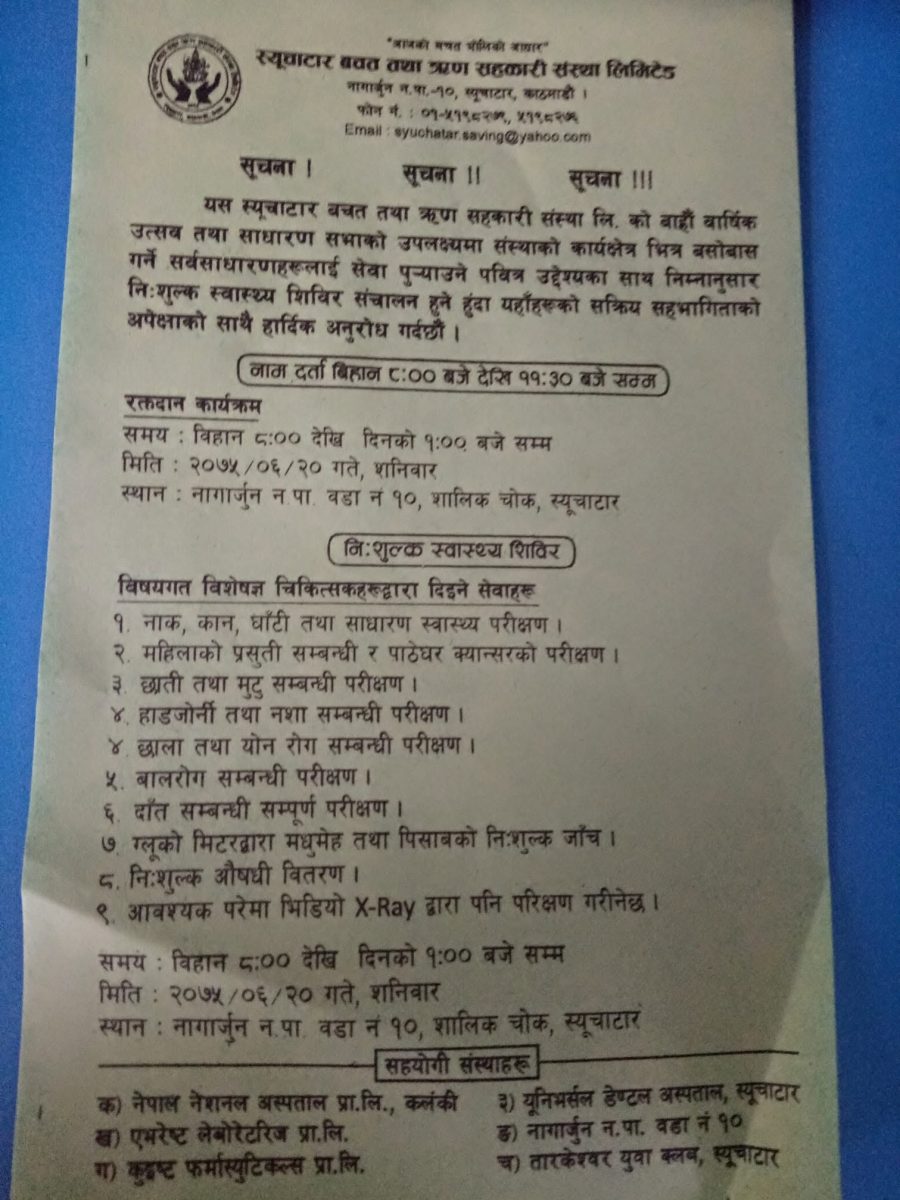 "आजको बचत भोलिको आधार"
स्यूचाटार बचत तथा ऋण सहकारी संस्था लिमिटेड
नागार्जुन न.पा.-१०, स्यूचाटार, काठमाडौं ।
फोन नं. : ०१-५१९८२७५, ५१९८२७६
Email : syuchatar.saving@yahoo.com
सूचना । सूचना ।। सूचना ।।।
यस स्यूचाटार बचत तथा ऋण सहकारी संस्था लि. को बाह्रौं वार्षिक
उत्सव तथा साधारण सभाको उपलक्ष्यमा संस्थाको कार्यक्षेत्र भित्र बसोबास
गर्ने सर्वसाधारणहरूलाई सेवा पुऱ्याउने पवित्र उद्देश्यका साथ निम्नानुसार
नि:शुल्क स्वास्थ्य शिविर संचालन हुने हुंदा यहाँहरूको सक्रिय सहभागिताको
अपेक्षाको साथै हार्दिक अनुरोध गर्दछौं ।
नाम दर्ता बिहान ८:०० बजे देखि ११:३० बजे सम्म
रक्तदान कार्यक्रम
समय : विहान ८:०० देखि दिनको १:०० बजे सम्म
मिति : २०७५/०६/२० गते, शनिवार
स्थान : नागार्जुन न.पा. वडा नं १०, शालिक चोक, स्यूचाटार
नि:शुल्क स्वास्थ्य शिविर
विषयगत विशेषज्ञ चिकित्सकहरूद्वारा दिइने सेवाहरू
१. नाक, कान, घाँटी तथा साधारण स्वास्थ्य परीक्षण ।
२. महिलाको प्रसुती सम्बन्धी र पाठेघर क्यान्सरको परीक्षण ।
३. छाती तथा मुटु सम्बन्धी परीक्षण ।
४. हाडजोर्नी तथा नशा सम्बन्धी परीक्षण ।
४. छाला तथा योन रोग सम्बन्धी परीक्षण ।
५. बालरोग सम्बन्धी परीक्षण ।
६. दाँत सम्बन्धी सम्पूर्ण परीक्षण ।
७. ग्लूको मिटरद्वारा मधुमेह तथा पिसाबको नि:शुल्क जाँच ।
८. नि:शुल्क औषधी वितरण ।
९. आवश्यक परेमा भिडियो X-Ray द्वारा पनि परिक्षण गरीनेछ ।
समय : विहान ८:०० देखि दिनको १:०० बजे सम्म
मिति : २०७५/०६/२० गते, शनिवार
स्थान : नागार्जुन न.पा. वडा नं १०, शालिक चोक, स्यूचाटार
सहयोगी संस्थाहरू
क) नेपाल नेशनल अस्पताल प्रा.लि., कलंकी
३) यूनिभर्सल डेण्टल अस्पताल, स्यूचाटार
ख) एभरेष्ट लेबोरेटरिज प्रा.लि.
ङ) नागार्जुन न.पा. वडा नं १०
ग) फर्मास्युटिकल्स प्रा.लि.
च) तारकेश्वर युवा क्लब, स्यूचाटार